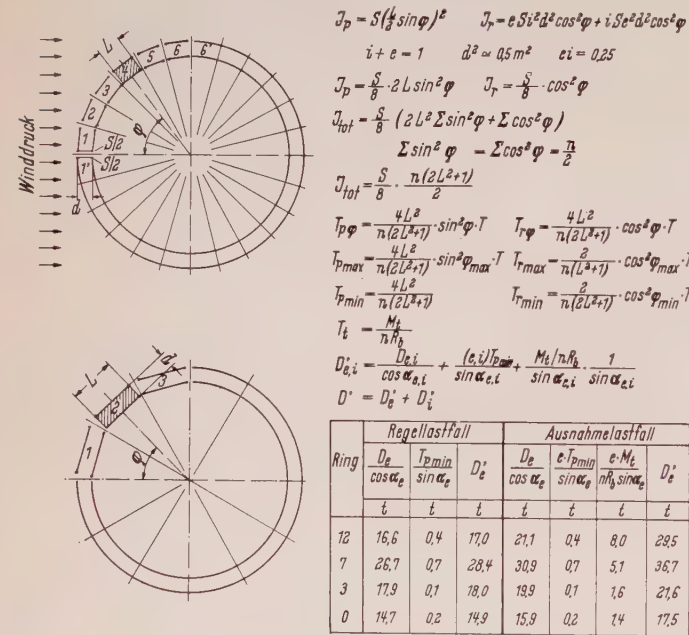 Winddruck
1'
1
2
3
4
5
6
6'
S/2
S/2
d
L
φ
J_p = S(L/2 sin φ)²   J_r = e S i² d² cos² φ + i S e² d² cos² φ
i + e = 1   d² ≃ 0,5 m²   ei = 0,25
J_p = S/8 · 2 L sin² φ   J_r = S/8 · cos² φ
J_tot = S/8 (2 L² Σ sin² φ + Σ cos² φ)
Σ sin² φ = Σ cos² φ = n/2
J_tot = S/8 · n(2L²+1)/2
T_pφ = 4L²/n(2L²+1) · sin² φ · T   T_rφ = 4L²/n(2L²+1) · cos² φ · T
T_pmax = 4L²/n(2L²+1) · sin² φ_max · T   T_rmax = 2/n(L²+1) · cos² φ_max · T
T_pmin = 4L²/n(2L²+1)   T_rmin = 2/n(2L²+1) · cos² φ_min · T
T_t = M_t/nR_b
D°_e,i = D_e,i/cos α_e,i + (e,i)T_pmin/sin α_e,i + M_t/nR_b/sin α_e,i · 1/sin α_e,i
D° = D°_e + D°_i
1
2
3
L
d
φ
Ring Regellastfall Ausnahmelastfall
D_e/cos α_e T_pmin/sin α_e D°_e D_e/cos α_e e·T_pmin/sin α_e e·M_t/nR_b sin α_e D°_e
t t t t t t t
12 16,6 0,4 17,0 21,1 0,4 8,0 29,5
7 26,7 0,7 28,4 30,9 0,7 5,1 36,7
3 17,9 0,1 18,0 19,9 0,1 1,6 21,6
0 14,7 0,2 14,9 15,9 0,2 1,4 17,5